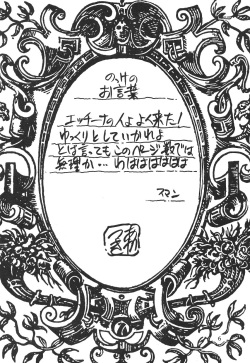 のっけの
お言葉
エッチーナの人よよく来た!
ゆっくりとしていかれよ
とは言ってもこのページ数では
無理か…わはははははは
フマン
6